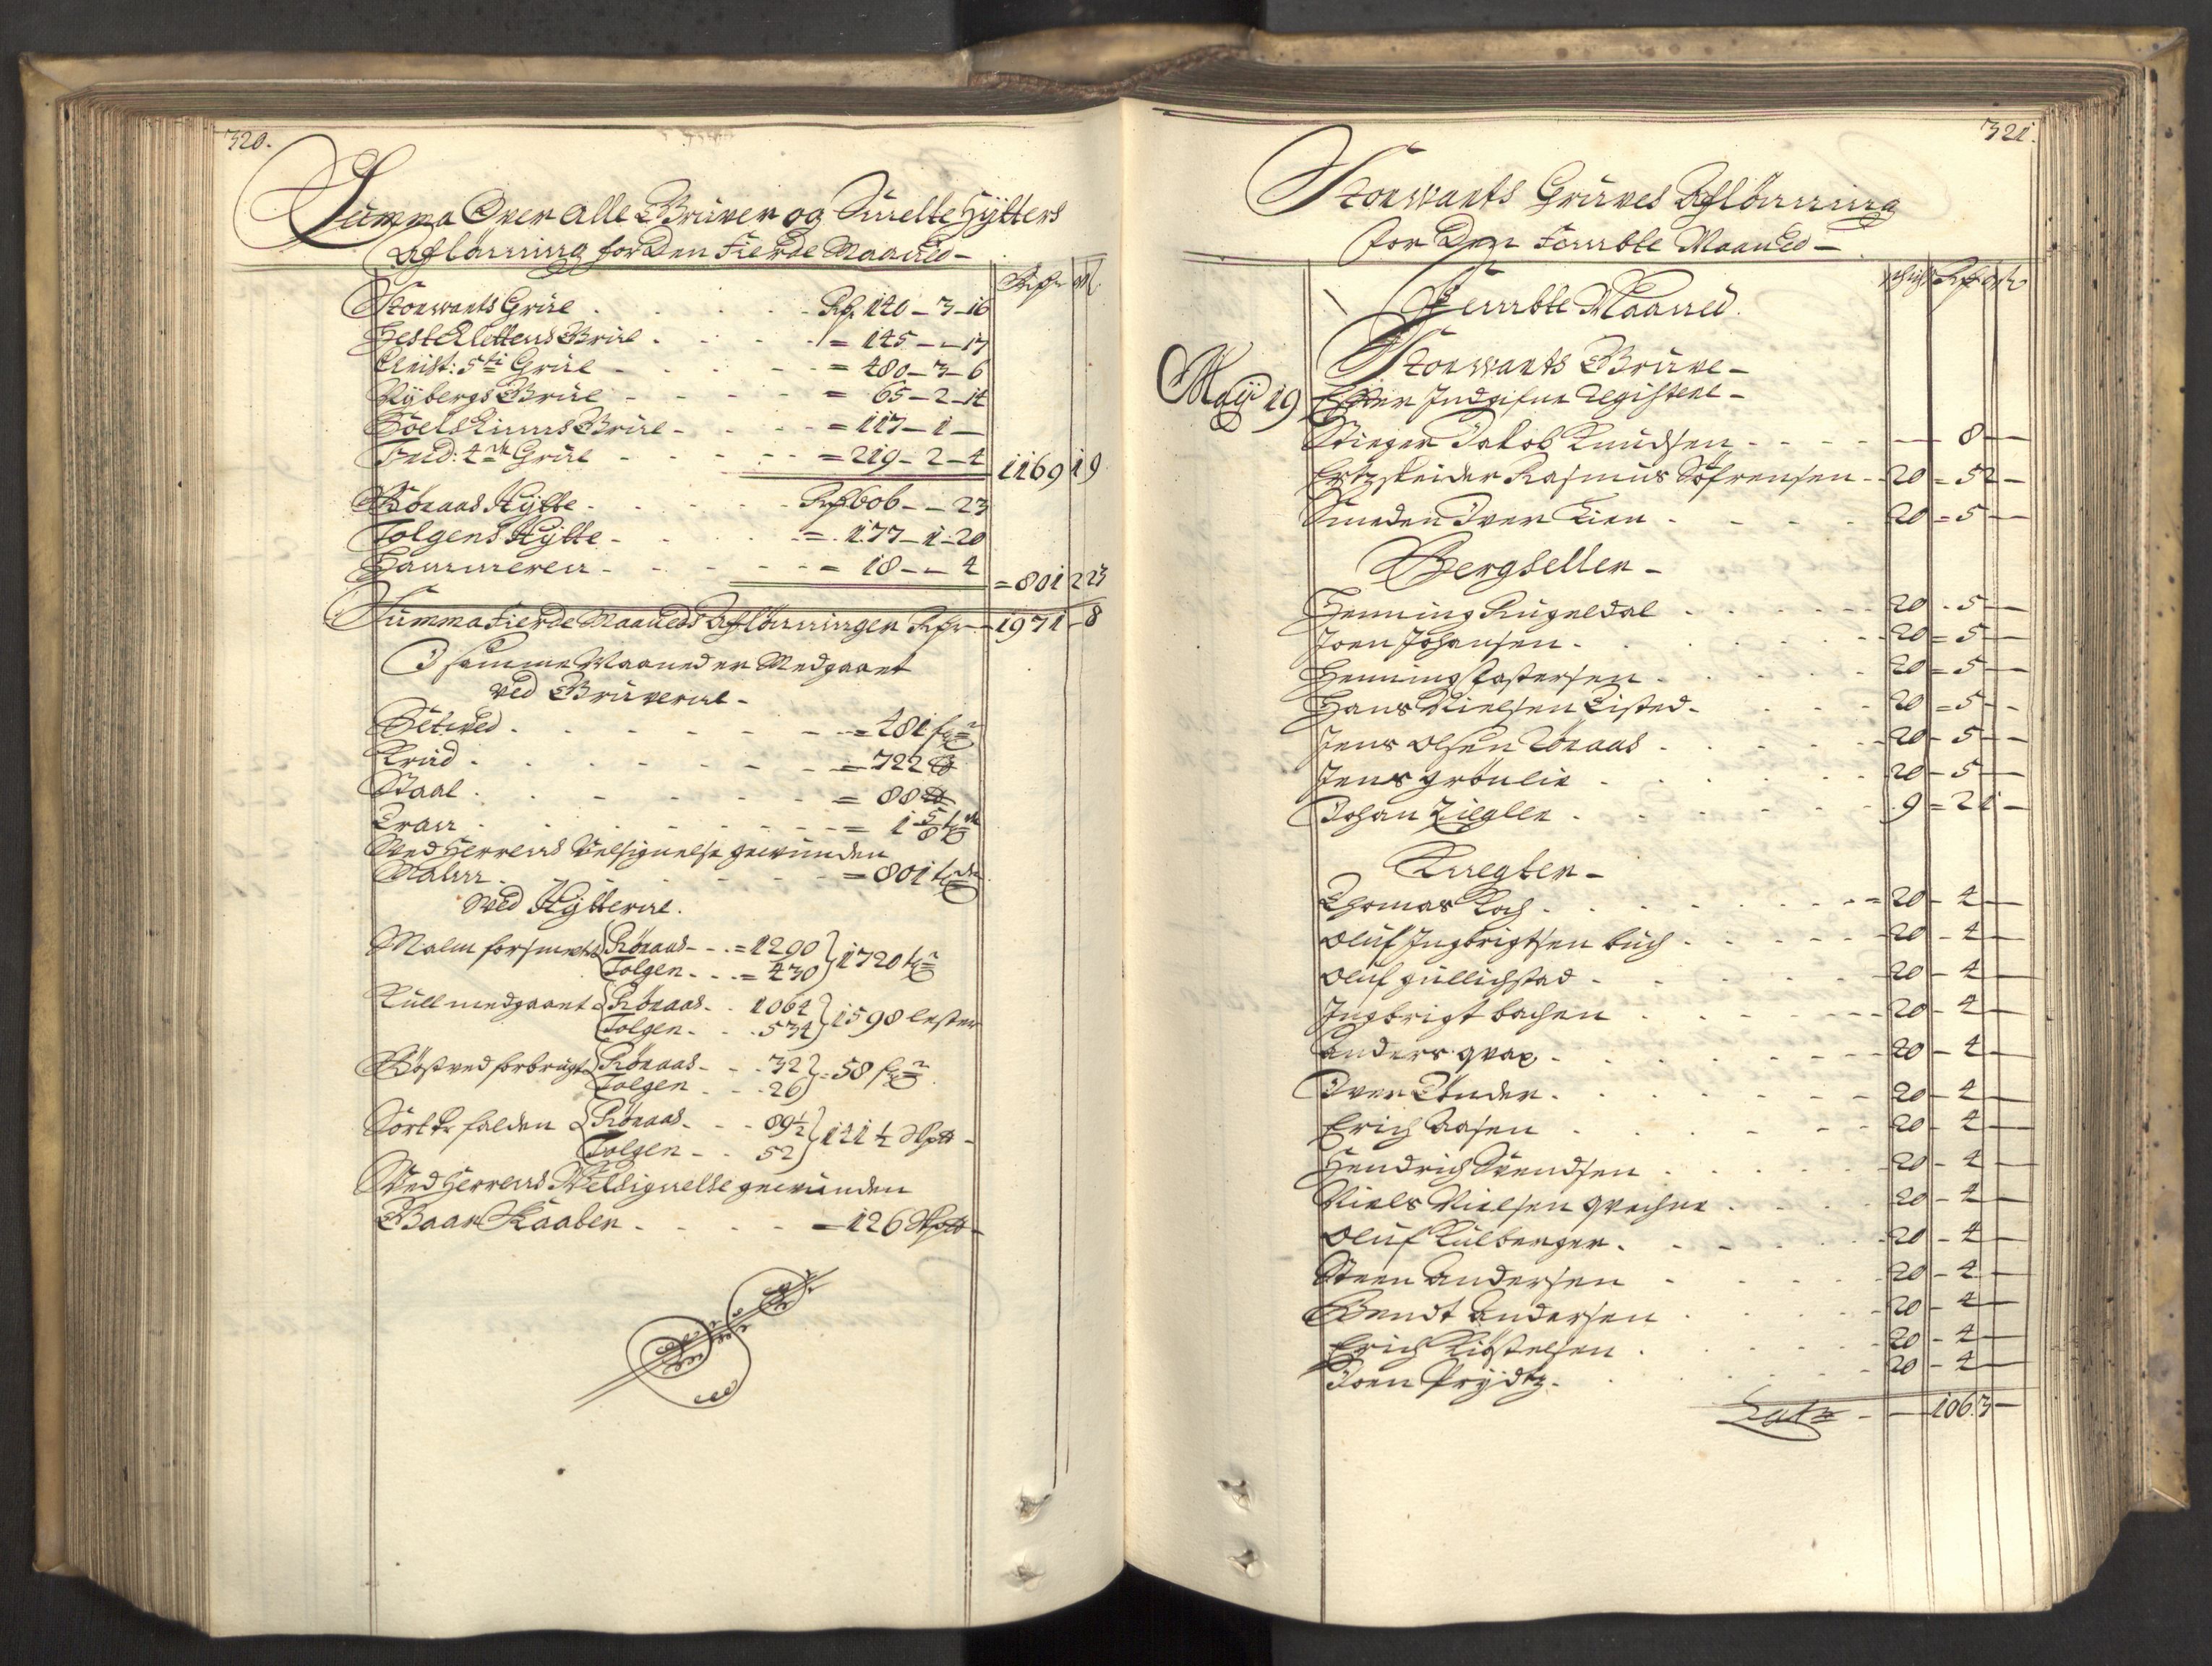 320.
Summa Over Alle Gruver og Smelte Hÿtters
Aflönning for Den Fierde Maaned -
Rdr M
Storwarts Grue . . . . Rdr 140 - 3 - 16
Hestklettens Grue . . . . = 145 - - 17
Christ: 5ti Grue - - - = 480 - 3 - 6
Nÿbergs Grue - - - = 65 - 2 - 14
Grue - - - = 117 - 1 -
Frid: 4ti Grue - - - = 219 - 2 - 4
1169 19
Röraas Hÿtte - - - Rdr 606 - - 23
Tolgens Hÿtte - - - = 177 - 1 - 20
Hammeren - - - = 18 - - 4
= 801 2 23
Summa Fierde Maaneds Aflönninger Rdr - 1971 - 8
I samme Maaned er Medgaaet
ved Gruverne -
Setved . - - - = 481 f
Krud . - - - = 722 ℔
Staal . - - - = 88 ℔
Tran . - - - = 1 5/8 t
Ved Herrens Velsignelse gewunden
Malm . - - - = 801 t
Ved Hÿtterne .
Malm forsmelt Röraas - - = 1290
Tolgen - - = 430 1720 t
Kull medgaaet Röraas - . 1064
Tolgen - . 534 1598 lester
Röstved forbrugt Röraas - - . 32
Tolgen - . 26 = 58 f
Sort Kr falden Röraas - - . 89 1/2
Tolgen - . 52 141 1/2 S℔ -
Ved Herrens Velsignelse gewunden
Gaar Kaaber - . . . = 126 S℔ -
321.
Storwarts Gruves Aflönning
for Den Femte Maaned -
Femte Maaned .
Storwarts Gruve -
Maÿ 19 Efter Indgifne Register -
Stiger Jakob Knudsen - - - - — 8 —
Ertzskeider Rasmus Söfrensen - 20 = 5 2 —
Smeden Iver Lien . - - - 20 = 5 —
Bergseller -
Henning Kugeldal . . . - 20 - 5 —
Joen Johansen . . . - 20 = 5 —
Henning Pastersen . . . 20 = 5 —
Hans Nielsen . . 20 = 5 - -
Jens Olsen Röraas . . . - 20 - 5 —
Jens Grönlie . . . 20 - 5 —
Johan Ziegler . . . - 9 = 2 1 —
Knegter -
Thomas Koch . . . - 20 - 4 —
Oluf Ingbrigtsen buch . . - 20 - 4 —
Oluf Gullichstad . . - 20 - 4 —
Ingbrigt bachen . . - 20 - 4 —
Anders qvap . . . - 20 - 4 —
Iver Tönder . . . - 20 - 4 —
Erich Aasen . . . - 20 - 4 —
Hendrich Svendsen . . . 20 - 4 —
Niels Nielsen . . . 20 - 4 —
Oluf Kulberger . . . 20 - 4 —
Steen Andersen . . . 20 - 4 —
Bendt Andersen . . . 20 - 4 —
Erich . . . 20 - 4 —
Joen Prÿdtz . . . 20 - 4 —
Lat - — 106. 3 —